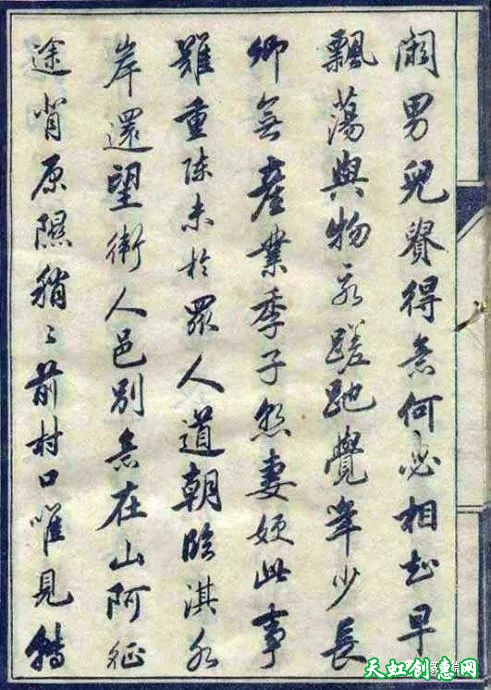 男兒貴得意何必相知早
飄蕩與物永蹉跎覺年少長
卿無產業季子慙妻嫂此事
難重陳未於眾人道朝臨淇水
岸還望衛人邑別意在山阿征
途背原隰稍〻前村口唯見轉
天虹创意网